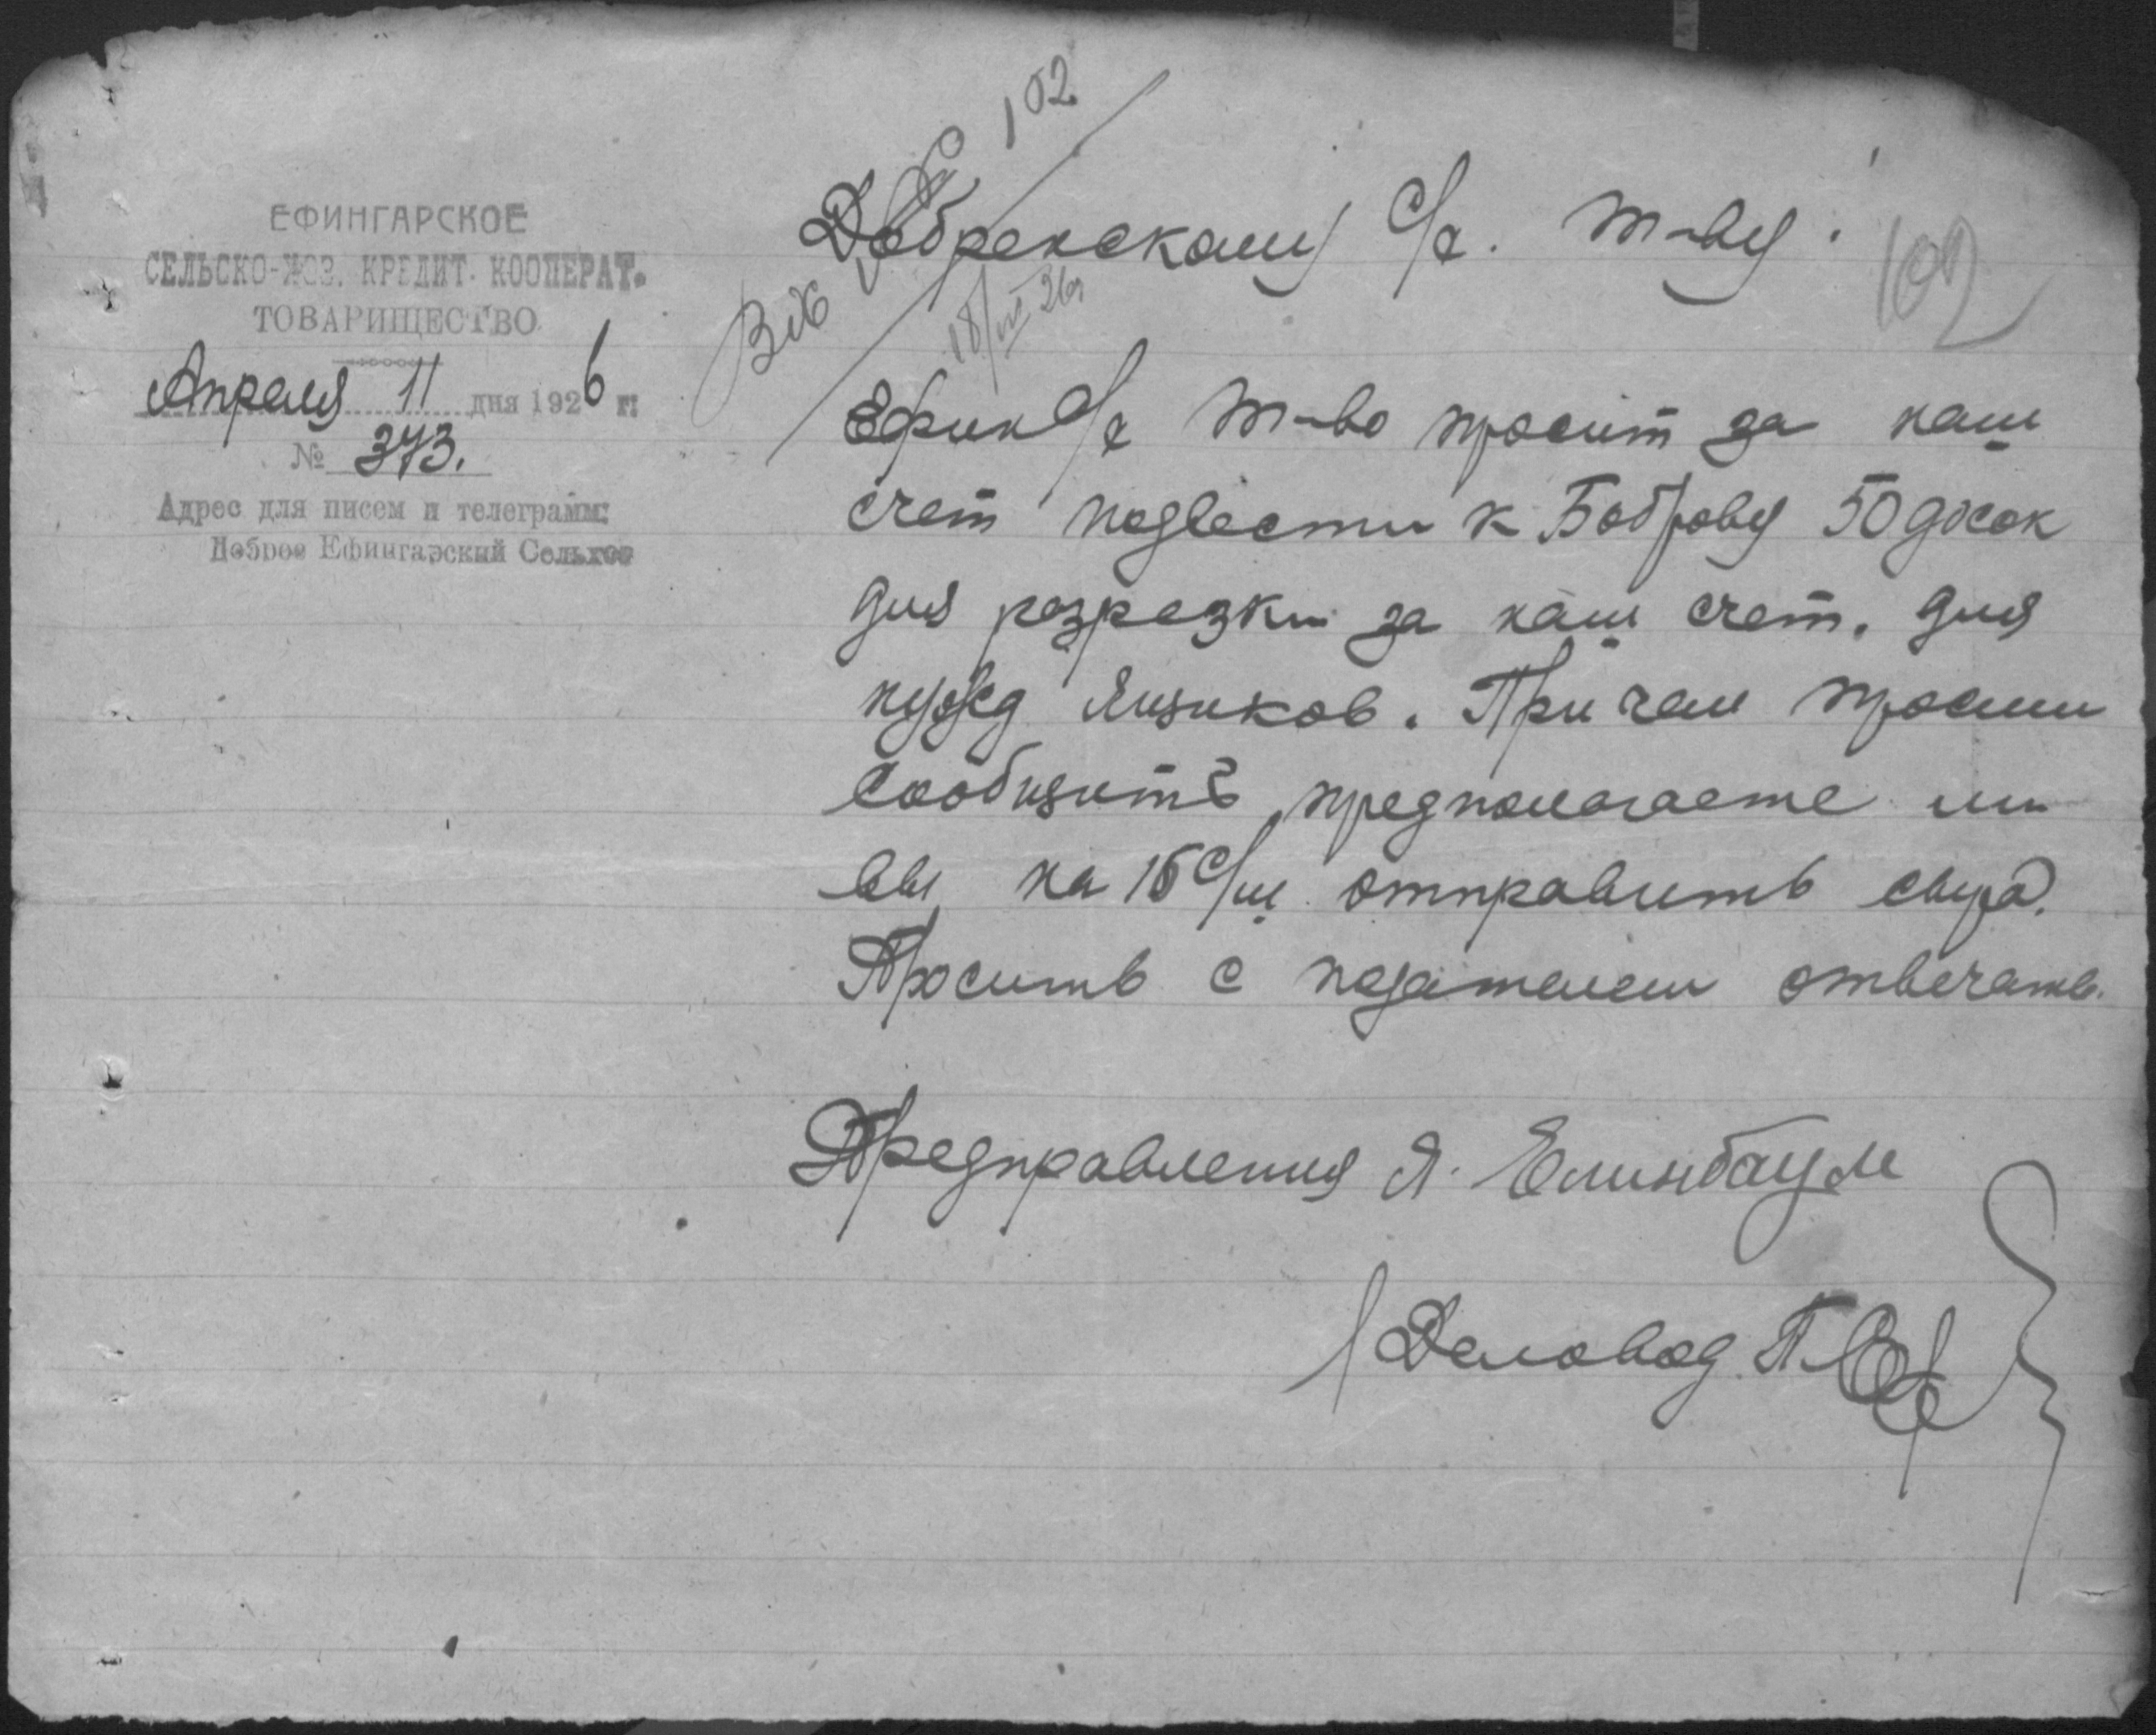 ЕФИНГАРСКОЕ
СЕЛЬСКО-ХОЗ. КРЕДИТ. КООПЕРАТ.
ТОВАРИЩЕСТВО
Апреля 11 дня 1926 г.
№ 373.
Адрес для писем и телеграмм:
Доброе Ефингарский Сельхоз
Вх № 102
18/IV 26г
102
Добренскому с/х. т-ву.
Ефин с/х т-во просит за наш
счет подвести к Боброву 50 досок
для розрезки за наш счет. для
нужд Ящиков. При чем просим
сообщить предполагаете ли
вы на 15 с/м отправить сыра.
Просить с подателем отвечать.
Предправления Я. Елинбаум
Деловод П.